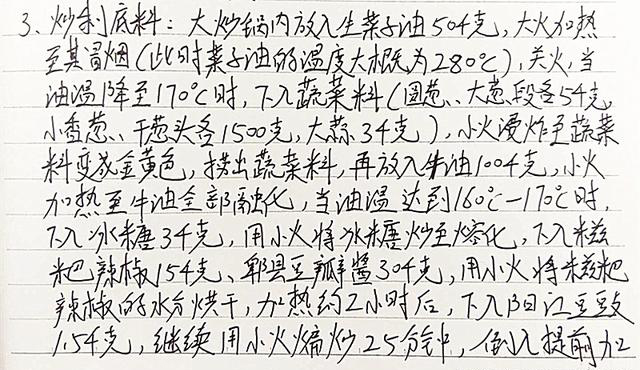 3、炒制底料：大炒锅内放入生菜子油504克，大火加热
至其冒烟(此时菜子油的温度大概为280℃)，关火，当
油温降至170℃时，下入蔬菜料(圆葱、大葱段各54克，
小香葱、干葱头各1500克，大蒜34克)，小火浸炸至蔬菜
料变成金黄色，捞出蔬菜料，再放入牛油1004克，小火
加热至牛油全部融化，当油温达到160℃-170℃时，
下入冰糖34克，用小火将冰糖炒至熔化，下入糍
粑辣椒154克、郫县豆瓣酱304克，用小火将糍粑
辣椒的水分烘干，加热约2小时后，下入阳江豆豉
154克，继续用小火煸炒25分钟，倒入提前加